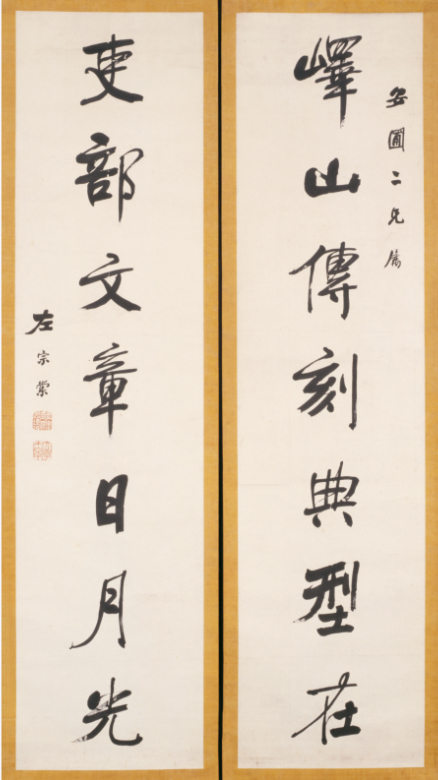 安圃二兄屬
嶧山傳刻典型在
吏部文章日月光
左宗棠